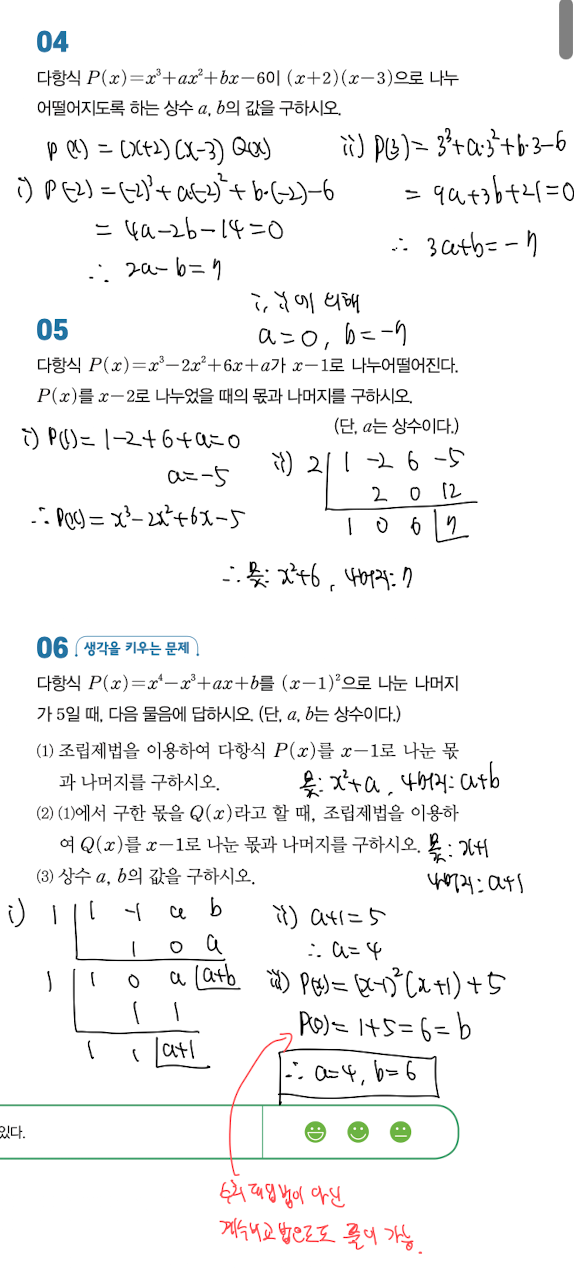 04
다항식 P(x)=x³+ax²+bx-6이 (x+2)(x-3)으로 나누
어떨어지도록 하는 상수 a, b의 값을 구하시오.
P(x) = (x+2)(x-3) Q(x)
i) P(-2) = (-2)³ + a(-2)² + b·(-2) - 6
= 4a-2b-14=0
∴ 2a-b=7
ii) P(3) = 3³+a·3²+b·3-6
= 9a+3b+21=0
∴ 3a+b=-7
i, ii에 의해
a=0, b=-7
05
다항식 P(x)=x³-2x²+6x+a가 x-1로 나누어떨어진다.
P(x)를 x-2로 나누었을 때의 몫과 나머지를 구하시오.
(단, a는 상수이다.)
i) P(1)= 1-2+6+a=0
a=-5
∴ P(x)= x³-2x²+6x-5
ii) 2 1 -2 6 -5
2 0 12
1 0 6 7
∴ 몫: x²+6, 나머지: 7
06 생각을 키우는 문제
다항식 P(x)=x⁴-x³+ax+b를 (x-1)²으로 나눈 나머지
가 5일 때, 다음 물음에 답하시오. (단, a, b는 상수이다.)
(1) 조립제법을 이용하여 다항식 P(x)를 x-1로 나눈 몫
과 나머지를 구하시오.
몫: x²+a, 나머지: a+b
(2) (1)에서 구한 몫을 Q(x)라고 할 때, 조립제법을 이용하
여 Q(x)를 x-1로 나눈 몫과 나머지를 구하시오.
몫: x+1
나머지: a+1
(3) 상수 a, b의 값을 구하시오.
i) 1 1 -1 a b
1 0 a
1 1 0 a a+b
1 1
1 1 a+1
ii) a+1=5
∴ a=4
iii) P(x)= (x-1)²(x+1)+5
P(0)= 1+5=6=b
∴ a=4, b=6
있다.
수치대입법이 아닌
계수비교법으로도 풀이 가능.